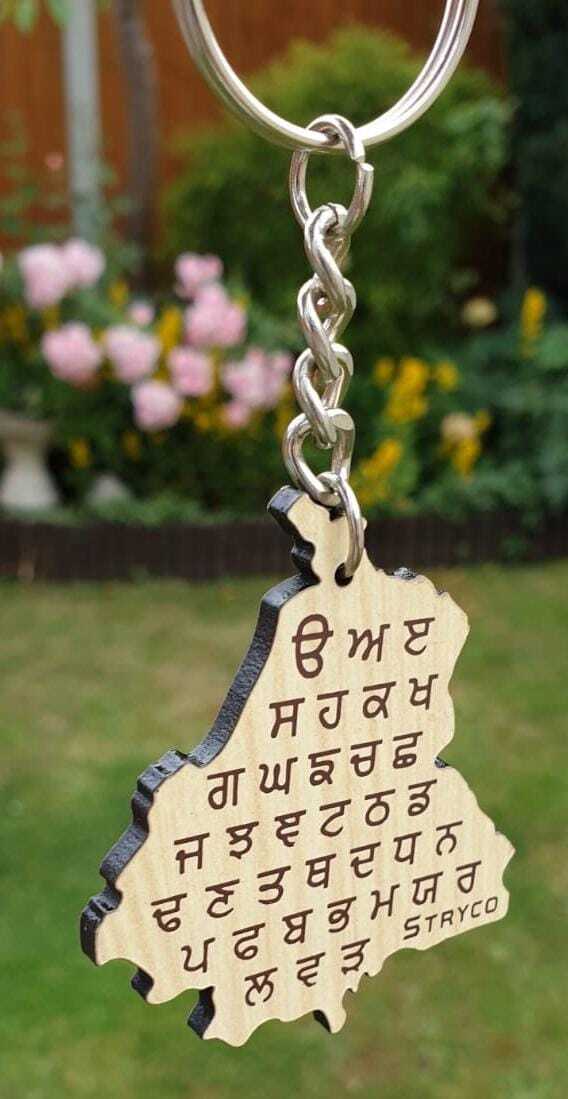 ੳ ਅ ੲ
ਸ ਹ ਕ ਖ
ਗ ਘ ਙ ਚ ਛ
ਜ ਝ ਞ ਟ ਠ ਡ
ਢ ਣ ਤ ਥ ਦ ਧ ਨ
ਪ ਫ ਬ ਭ ਮ ਯ ਰ
ਲ ਵ ੜ
STRYCO